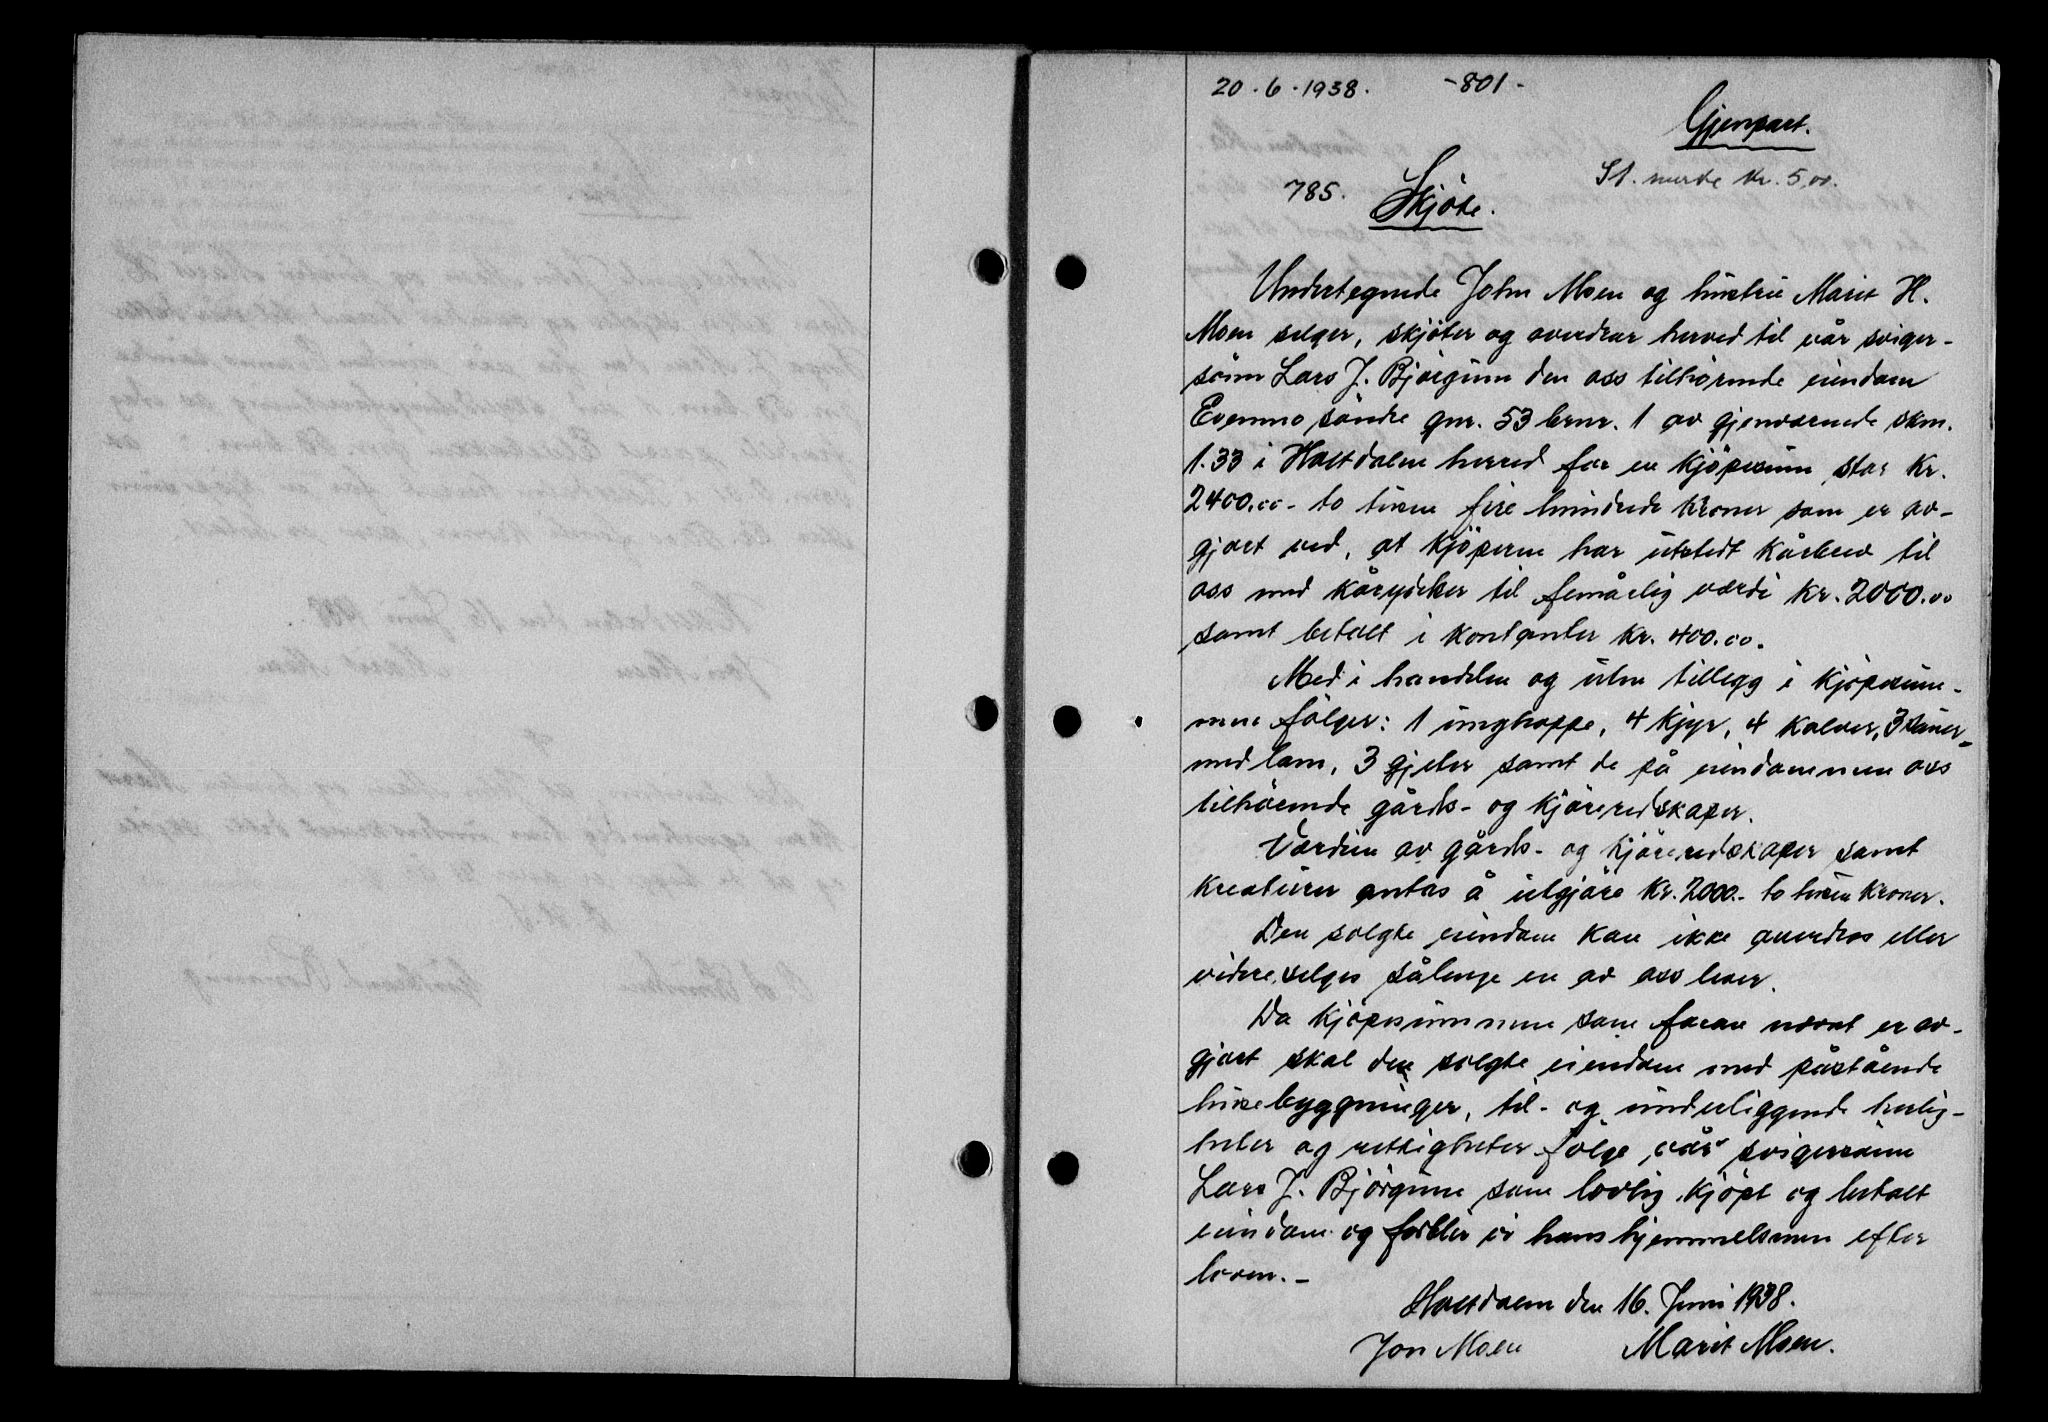 20 . 6 . 1938. - 801 -
Gjenpart.
St. merke kr. 5,00.
785. Skjöte.
Undertegnede John Moen og hustru Marit H.
Moen selger, skjöter og overdrar herved til vår sviger-
sönn Lars J. Björgum den oss tilhörende eiendom
Evenmo söndre gnr. 53 brnr. 1 av gjenværende skm.
1.33 i Haltdalen herred for en kjöpesum stor kr.
2400.00 - to tusen fire hundrede kroner som er av-
gjort ved, at kjöperen har utstedt kårbrev til
oss med kårydelser til femårlig værdi kr. 2000.00
samt betalt i kontanter kr. 400.00.
Med i handelen og uten tillegg i kjöpesum-
men fölger: 1 unghoppe, 4 kjyr, 4 kalver, 3 sauer
med lam, 3 gjeter samt de på eiendommen oss
tilhörende gårds- og kjöreredskaper.
Værdien av gårds- og kjöreredskaper samt
kreaturer antas å utgjöre kr. 2000.- to tusen kroner.
Den solgte eiendom kan ikke averdras eller
videre selges sålenge en av oss lever.
Da kjöpesummen som foran nævnt er av-
gjort skal den solgte eiendom med påstående
husebyggninger, til- og underliggende herlig-
heter og rettigheter fölge vår svigersönn
Lars J. Björgum som lovlig kjöpt og betalt
eiendom og forblir vi hans hjemmelsmen efter
loven. -
Haltdalen den 16. Juni 1938.
Jon Moen Marit Moen.